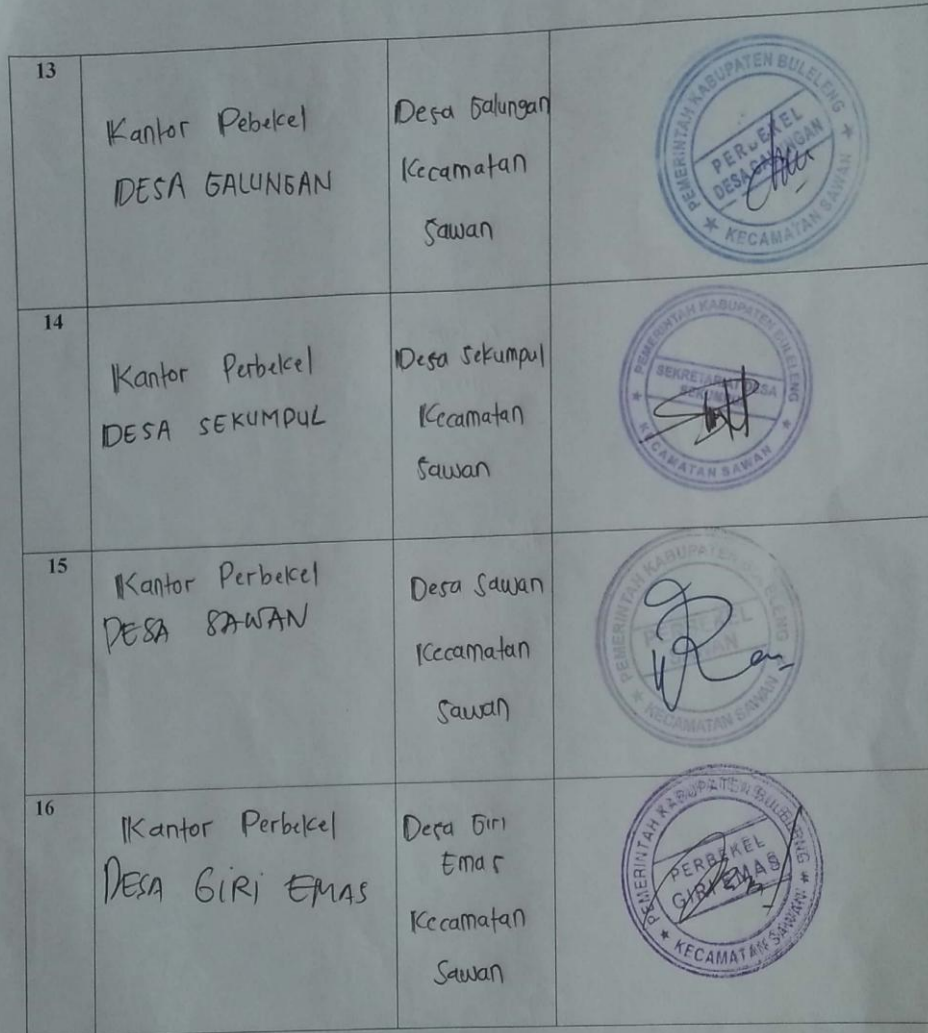 13
Kantor Pebekel
DESA GALUNGAN
Desa Galungan
Kecamatan
Sawan
PEMERINTAH KABUPATEN BULELENG
PERBEKEL
DESA GALUNGAN
KECAMATAN SAWAN
14
Kantor Perbekel
DESA SEKUMPUL
Desa Sekumpul
Kecamatan
Sawan
PEMERINTAH KABUPATEN BULELENG
SEKRETARIAT DESA
SEKUMPUL
KECAMATAN SAWAN
15
Kantor Perbekel
DESA SAWAN
Desa Sawan
Kecamatan
Sawan
PEMERINTAH KABUPATEN BULELENG
PERBEKEL
SAWAN
KECAMATAN SAWAN
16
Kantor Perbekel
DESA GIRI EMAS
Desa Giri
Emas
Kecamatan
Sawan
PEMERINTAH KABUPATEN BULELENG
PERBEKEL
GIRI EMAS
KECAMATAN SAWAN